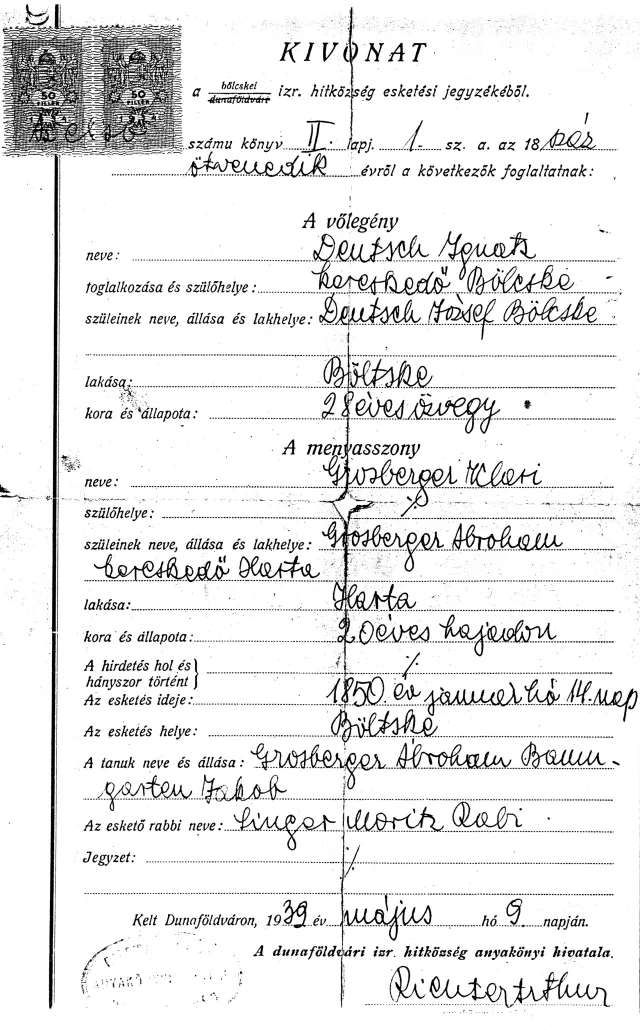 50 FILLÉR 50 FILLÉR
KIVONAT
a bölcskei dunaföldvári izr. hitközség esketési jegyzékéből.
számu könyv II. lapj. 1. sz. a. az 18 száz
ötvenedik évről a következők foglaltatnak:
A vőlegény
neve: Deutsch Ignatz
foglalkozása és szülőhelye: kereskedő Bölcske
szüleinek neve, állása és lakhelye: Deutsch József Bölcske
lakása: Böltske
kora és állapota: 28 éves özvegy
A menyasszony
neve: Grosberger Klari
szülőhelye: ·/.
szüleinek neve, állása és lakhelye: Grosberger Abraham
kereskedő Harta
lakása: Harta
kora és állapota: 20 éves hajadon
A hirdetés hol és
hányszor történt } ·/.
Az esketés ideje: 1850. év januar hó 14. nap
Az esketés helye: Böltske
A tanuk neve és állása: Grosberger Ábroham Baum-
garten Jakob
Az eskető rabbi neve: Singer Moritz Rabi
Jegyzet: ·/.
Kelt Dunaföldváron, 1939 év május hó 9 napján.
A dunaföldvári izr. hitközség anyakönyi hivatala.
Richter Arthur